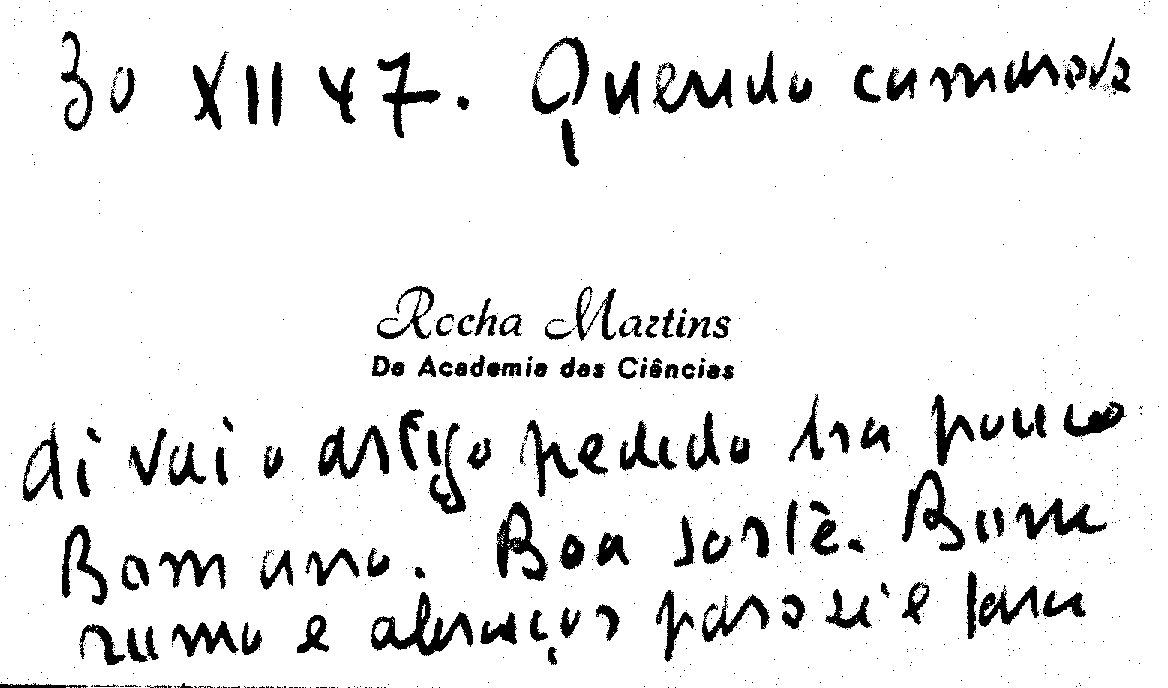 30 XII 47. Querido camarada
Rocha Martins
Da Academia das Ciências
Ai vai o artigo pedido ha pouco
Bom ano. Boa sorte. Bom
rumo e abraços para si e para